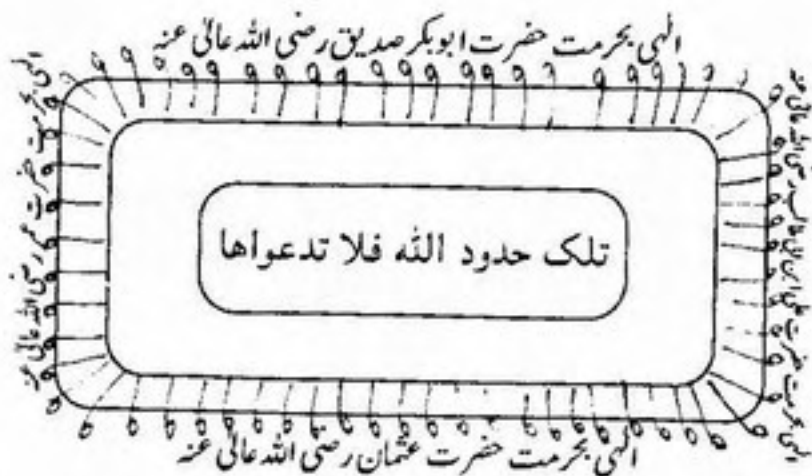 الٰہی بحرمت حضرت ابوبکر صدیق رضی اللہ تعالیٰ عنہ
الٰہی بحرمت حضرت علی ابن ابی طالب رضی اللہ تعالیٰ عنہ
تلک حدود اللہ فلا تدعواها
الٰہی بحرمت حضرت عمر رضی اللہ تعالیٰ عنہ
الٰہی بحرمت حضرت عثمان رضی اللہ تعالیٰ عنہ